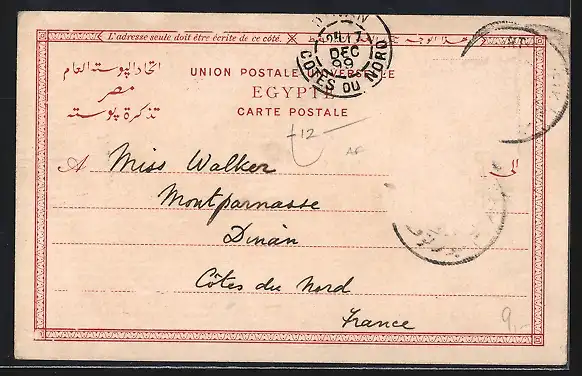 L'adresse seule doit être écrite de ce côté.
DINAN
7
DEC
99
COTES DU NORD
اتحاد البوسته العام
مصر
تذكرة بوسته
UNION POSTALE UNIVERSELLE
EGYPTE
CARTE POSTALE
£12
A Miss Walker
الى
Montparnasse
Dinan
Côtes du Nord
France
9,-